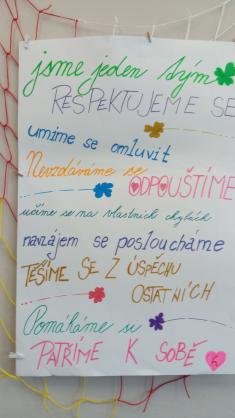 jsme jeden tým
RESPEKTUJEME SE
umíme se omluvit
Nevzdáváme se
ODPOUŠTÍME
učíme se na vlastních chybách
navzájem se posloucháme
TĚŠÍME SE Z ÚSPĚCHU
OSTATNÍCH
Pomáháme si
PATŘÍME K SOBĚ